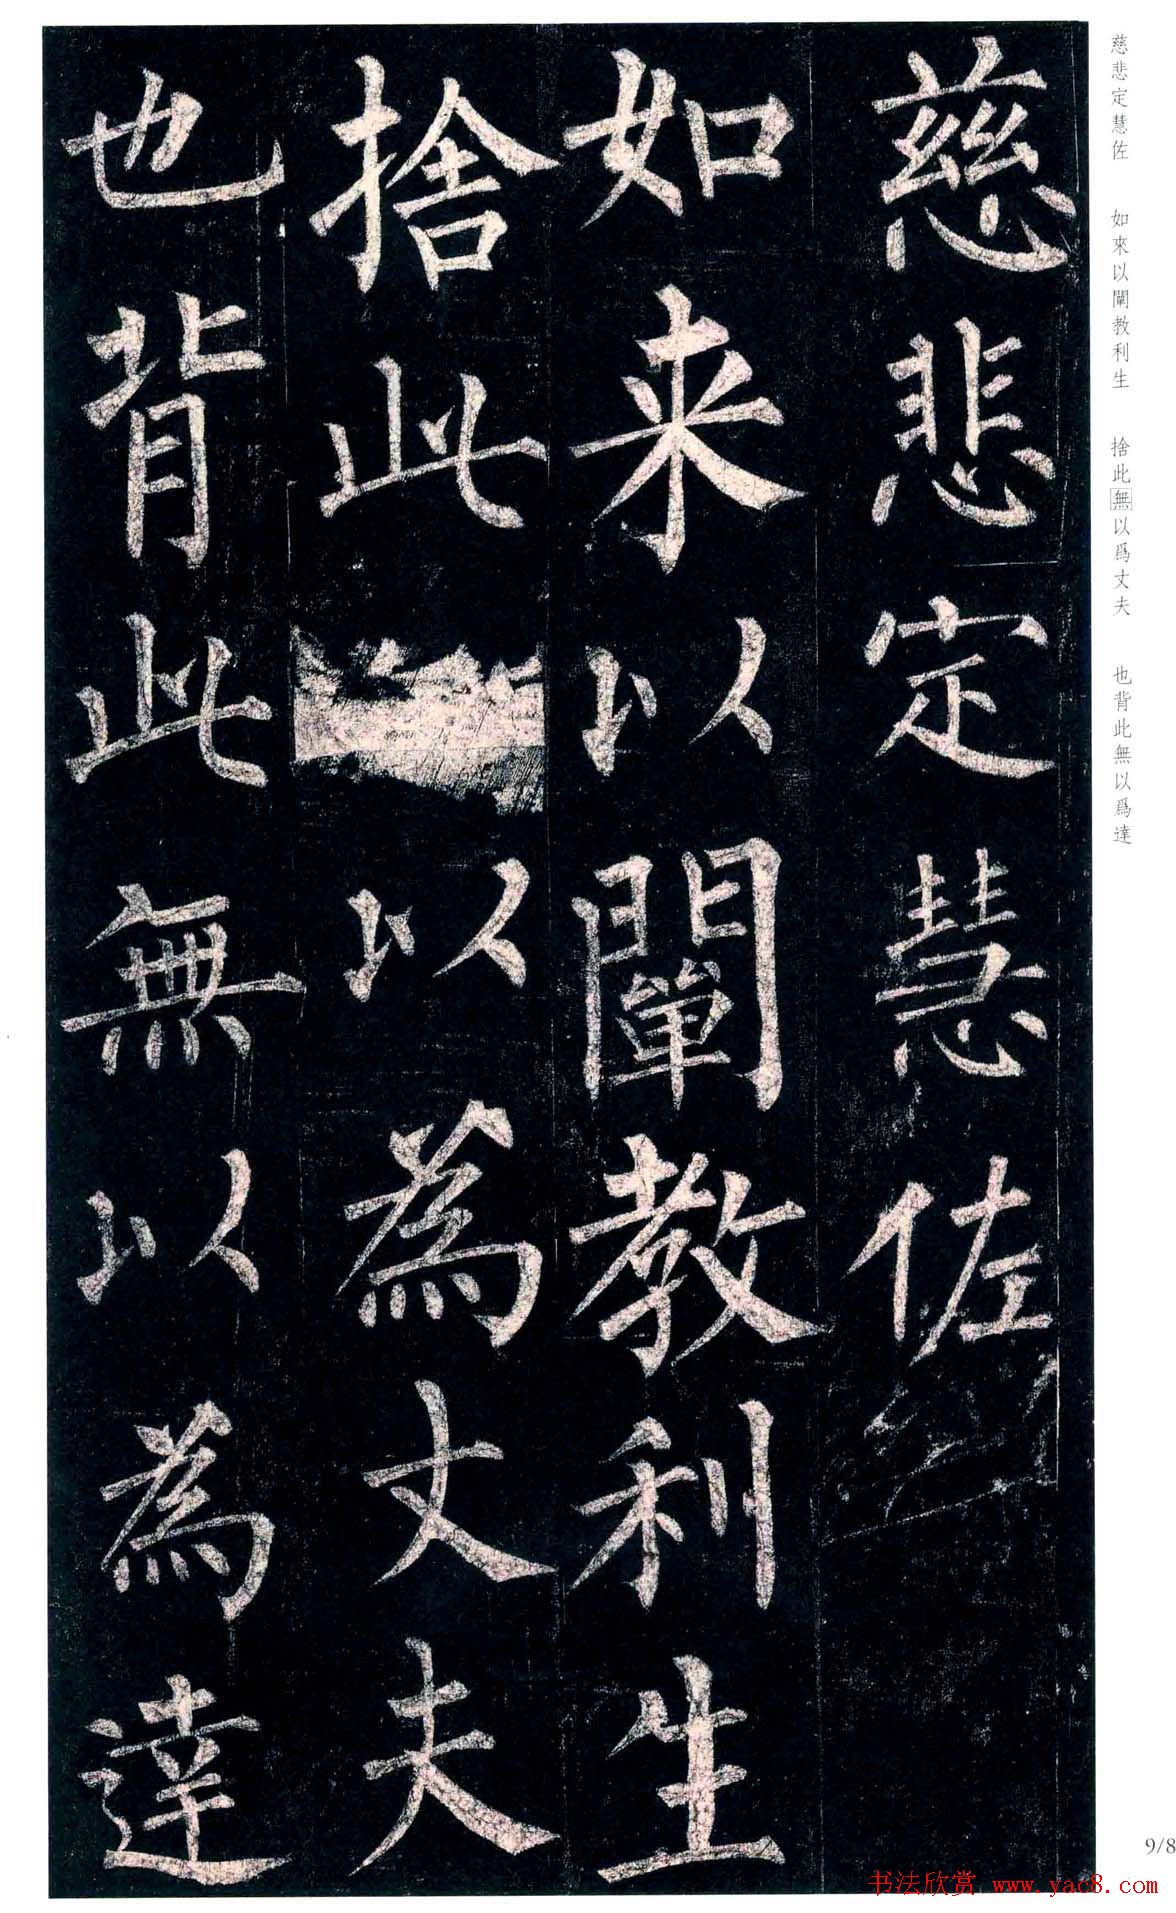 慈悲定慧佐
如来以闡教利生
捨此以為丈夫
也背此無以為達
慈悲定慧佐 如來以闡教利生 捨此無以爲丈夫 也背此無以爲達
9/8
书法欣赏 www.yac8.com